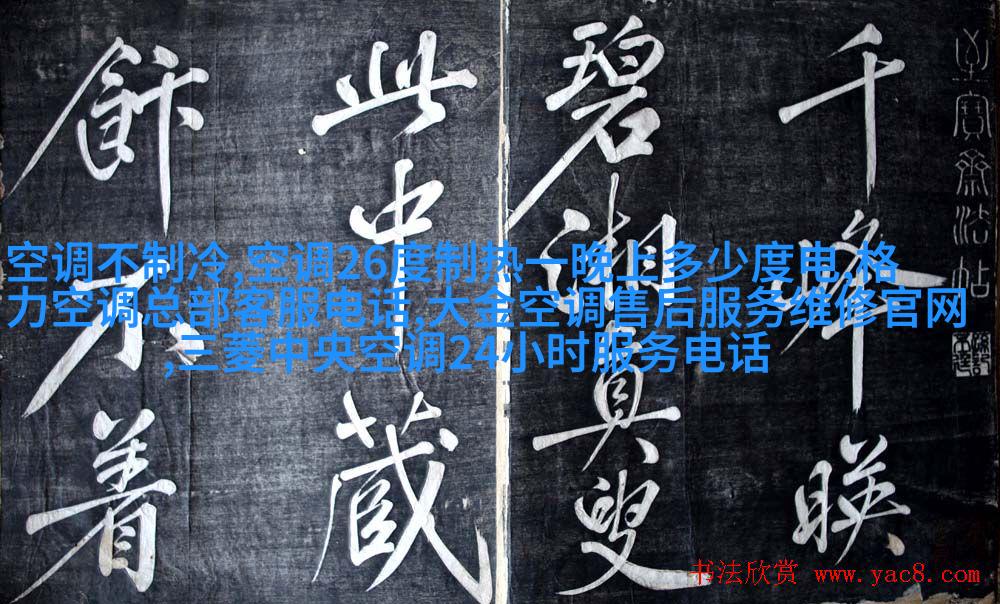 至寶齋法帖
千峰映
碧湘真叟
此中藏
飰不着
空调不制冷,空调26度制热一晚上多少度电,格
力空调总部客服电话,大金空调售后服务维修官网
,三菱中央空调24小时服务电话
书法欣赏 www.yac8.com